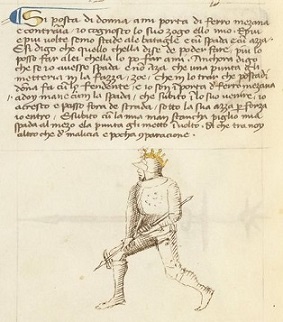 Si posta di donna a mi porta di ferro mezana
e contraria, io cognosco lo suo zogo ello mio. E piu
e piu volte semo stade ale bataglie e cum spada e cum azza.
E si digo che quello chella dise de poder fare, piu lo
posso far a lei chella lo po far a mi. Anchora digo
che se io avesse spada e no azza che una punta gli
metteria in la fazza, zoe, che in lo trar che posta di
donna fa cum lo fendente, e io son in porta di ferro mezana
a doy man cum la spada, che subito in lo suo venire, io
acresco e passo fora de strada, sotto la sua azza per forza
io entro, e subito cum la mia man stancha piglio mia
spada al mezo e la punta gli metto in lo volto. Si che tra noy
altro che di malicia e pocha comparacione.